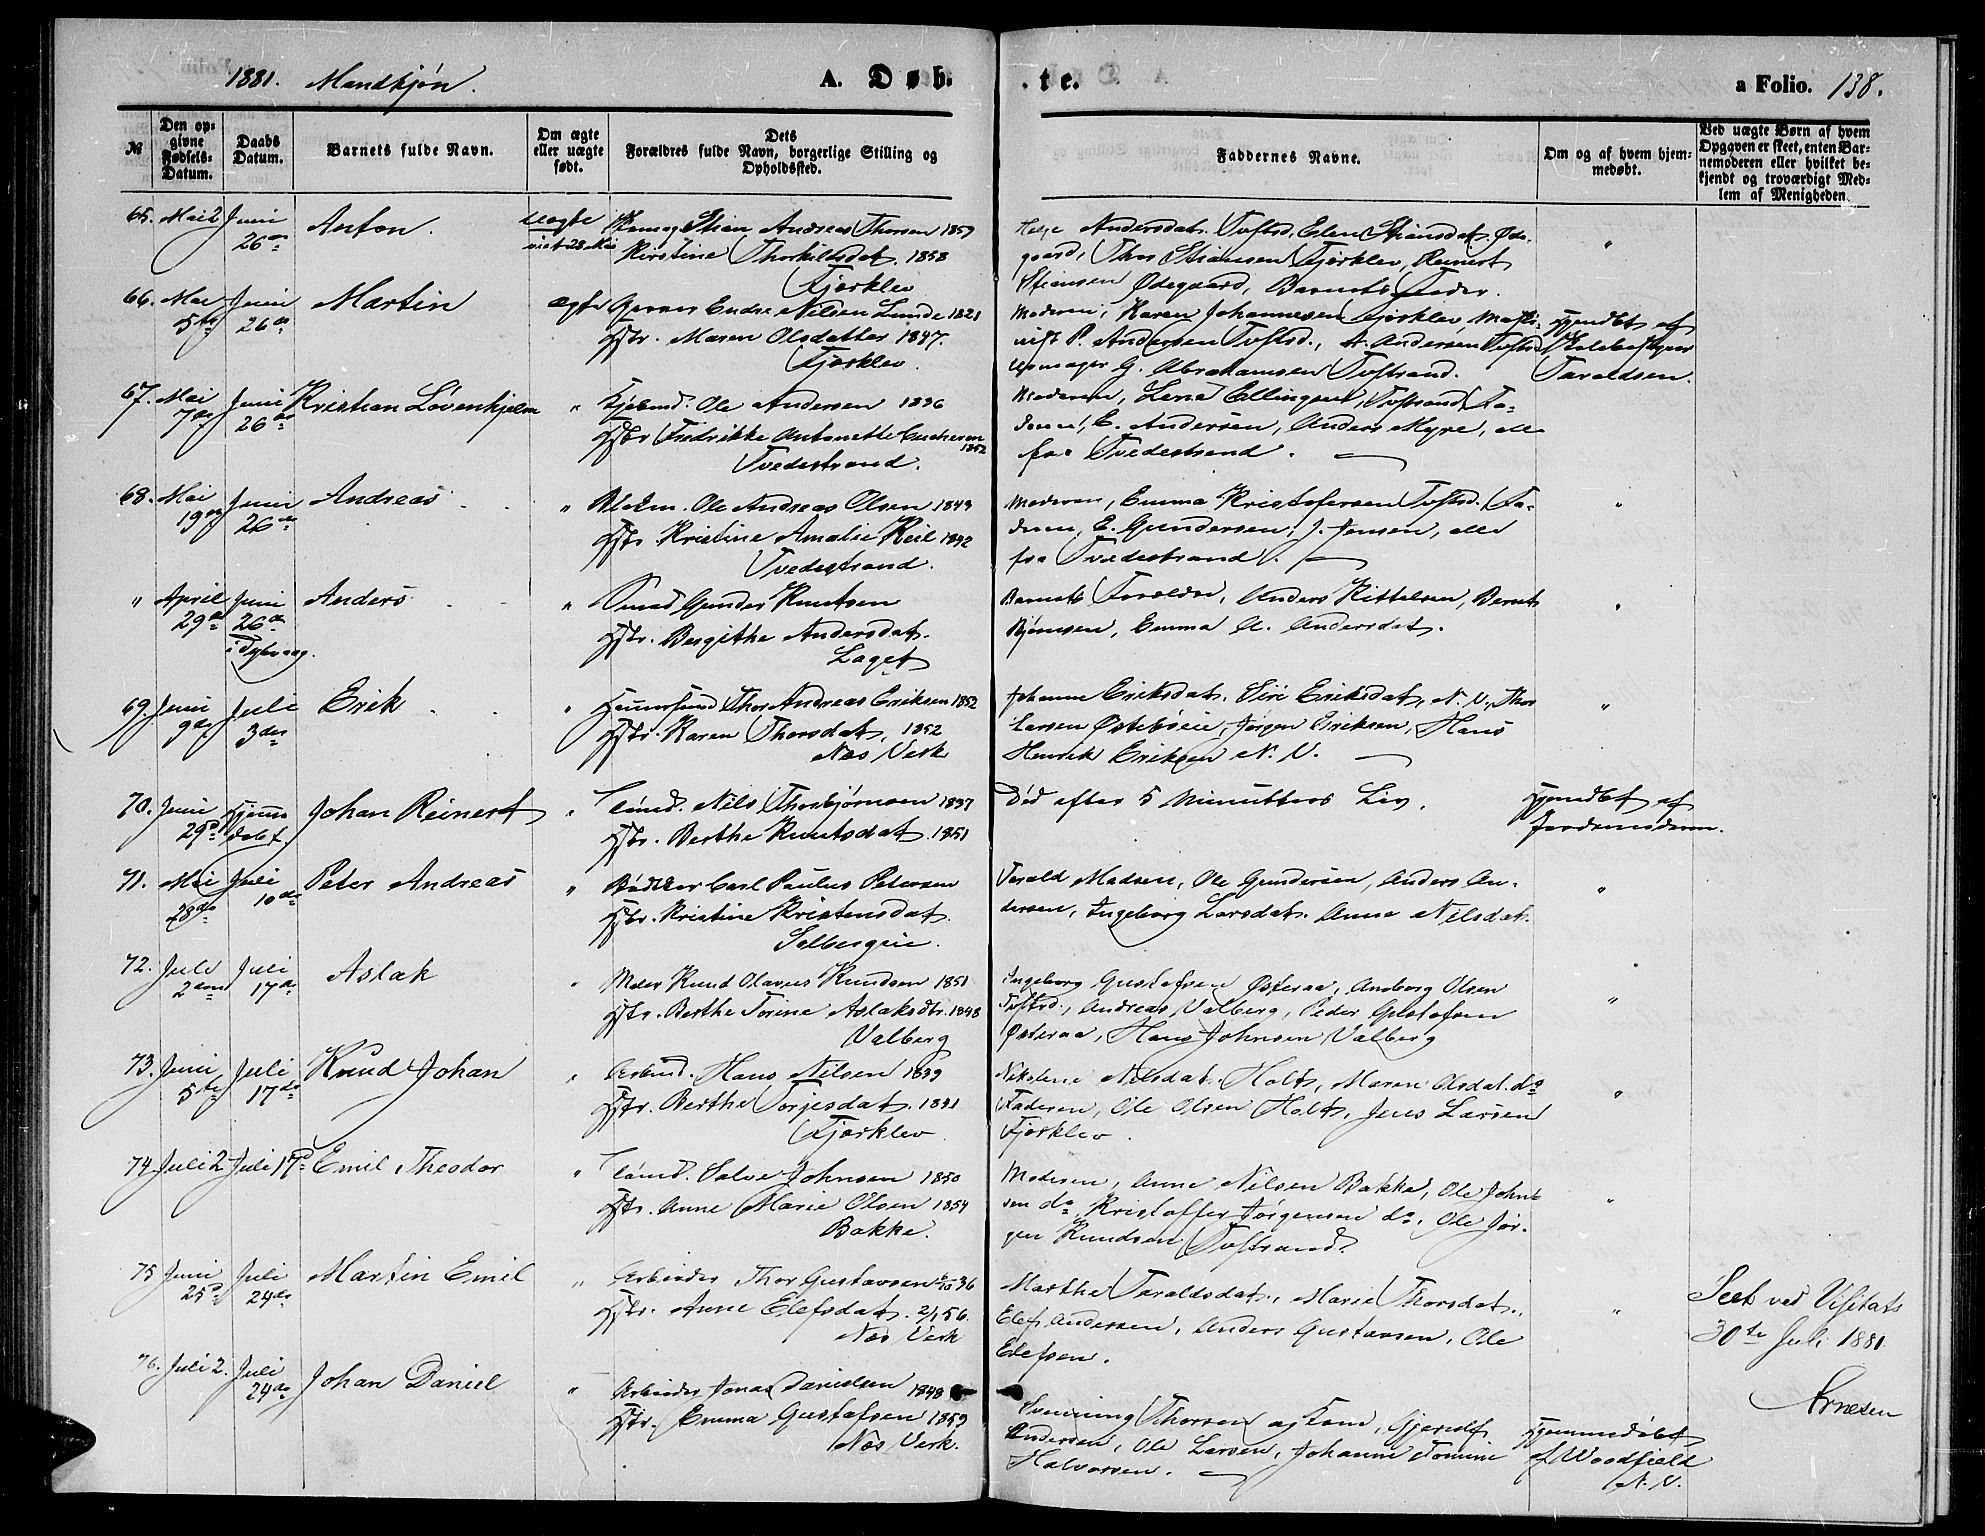 1881. Mandkjøn. A. Døb. .te. a Folio. 138.
№ Den opgivne Fødsels-Datum. Daabs Datum. Barnets fulde Navn. Om ægte eller uægte født. Dets Forældres fulde Navn, borgerlige Stilling og Opholdssted. Faddernes Navne. Om og af hvem hjemmedøbt. Ved uægte Børn af hvem Opgaven er skeet, enten Barnemoderen eller hvilket bekjendt og troværdigt Medlem af Menigheden.
65. Mai 2 Juni Anton. uægte Stian Andreas Thorsen 1857 Helje Andersdat. Tvestrd, Elen Stiansdat. Øde-
26de viet 28 Mai Kirstine Thorkildsdat. 1858 gaard, Thor Stiansen Fjærklev, Reinert "
Fjærklev Stiansen Ødegaard, Barnets Fader.
66. Mai Juni Martin ægte Endre Nilsen Lunde 1821 Moderen, Karen Johannesen Fjærklev, Hjemdøbt af
5te 26de Hstr. Maren Olsdatter 1847. P. Andersen Tvestrd., A. Andersen Tvestrd
Fjærklev G. Abrahamsen Tvestrand. Taraldsen.
67. Mai Juni Kristian Løvenhjelm " Kjøbmd. Ole Andersen 1836 Moderen, Lena Ellingsen, Tvestrand, Fa-
7de 26de Hstr Fredrikke Antonette 1852 deren, E. Andersen, Anders Myre, alle
Tvedestrand. fra Tvedestrand.
68. Mai Juni Andreas " Ole Andreas Olsen 1849 Moderen, Emma Kristofersen Tvestrd. Fa- "
19de 26de Hstr Kristine Amalie Keil 1842 deren, E. Gundersen, J. Jensen, alle
Tvedestrand. fra Tvedestrand.
" April Juni Anders " Smed Gunder Knutsen Barnets Forældre, Anders Kittelsen, Bernt "
29de 26de Hstr. Birgithe Andersdat. Bjørnsen, Emma A. Andersdat.
i Dybvaag. Laget
69. Juni Juli Erik " Thor Andreas Eriksen 1852 Johanne Eriksdat. Siri Eriksdat, N. V., Thor "
9de 3die Hstr. Karen Thorsdat. 1852 Larsen Østebøeie, Jørgen Eriksen, Hans
Næs Verk Henrik Eriksen N. V.
70. Juni Hjemme Johan Reinert " Nils Thorbjørnsen 1837 Død efter 5 Minutters Liv. Hjemdøbt af
29de døbt. Hstr. Berthe Knutsdat. 1851 Jordemoderen.
71. Mai Juli Peter Andreas " Bødker Carl Paulus Petersen Tarald Madsen, Ole Gundersen, Anders An- "
28de 10de Hstr. Kristine Kristensdat. dersen, Ingeborg Larsdat. Anne Nilsdat.
Solbergeie.
72. Juli Juli Aslak " Knud Olavus Knudsen 1851 Ingeborg Gustafsen Østeraa, Anborg Olsen "
2den 17de Hstr. Berthe Torine Aslaksdtr. 1848 Tvestrd., Andreas Valberg, Peder Gustafsen
Valberg Østeraa, Hans Johnsen Valberg
73. Juni Juli Knud Johan " Arbmd. Hans Nilsen 1839 Nikoline Nilsdat. Holt, Maren Olsdat. do "
5te 17de Hstr. Berthe Torjesdat. 1841 Faderen, Ole Olsen Holt, Jens Larsen
Fjærklev Fjærklev.
74. Juli 2 Juli 17de Emil Theodor " Salve Johnsen 1850 Moderen, Anne Nilsen Bakke, Ole John- "
Hstr. Anne Marie Olsen 1854 sen do, Kristoffer Jørgensen do, Ole Jør-
Bakke. gen Knudsen Tvestrand.
75 Juni Juli Martin Emil " Arbeider Thor Gustavsen 36 Marthe Taraldsdat., Marie Thorsdat., " Seet ved Visitats
25de 24de Hstr. Anne Elefsdat. 2/1 56. Elef Andersen, Anders Gustavsen, Ole 30te Juli 1881
Næs Verk Elefsen. Arnesen
76. Juli 2. Juli Johan Daniel " Arbeider Jonas Danielsen 1848 Svenning Thorsen og Kone, Gjerulf Hjemmedøbt
24de Hstr. Emma Gustafsen 1859 Andersen, Ole Larsen, Johanne Tomine af Woodfield
Næs Verk. Halvorsen. N. V.